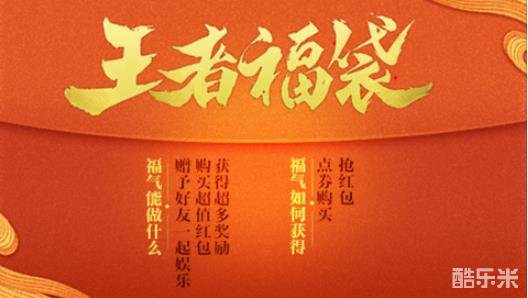 王者福袋
福气能做什么
赠予好友一起娱乐
购买超值红包
获得超多奖励
福气如何获得
点券购买
抢红包
酷乐米